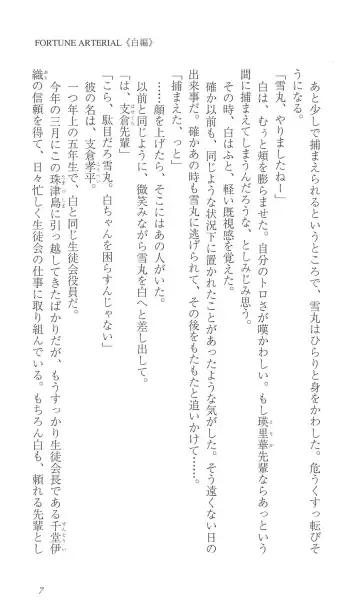 FORTUNE ARTERIAL《白編》
あと少しで捕まえられるというところで、雪丸はひらりと身をかわした。危うくすっ転びそ
うになる。
「雪丸、やりましたねー」
白は、むぅと頬を膨らませた。自分のトロさが嘆かわしい。もし瑛里華先輩ならあっという
間に捕まえてしまうんだろうな、としみじみ思う。
その時、白はふと、軽い既視感を覚えた。
確か以前も、同じような状況下に置かれたことがあったような気がした。そう遠くない日の
出来事だ。確かあの時も雪丸に逃げられて、その後をもたもたと追いかけて……。
「捕まえた、っと」
……顔を上げたら、そこにはあの人がいた。
以前と同じように、微笑みながら雪丸を白へと差し出して。
「は、支倉先輩」
「こら、駄目だろ雪丸。白ちゃんを困らすんじゃない」
彼の名は、支倉孝平。
一つ年上の五年生で、白と同じ生徒会役員だ。
今年の三月にこの珠津島に引っ越してきたばかりだが、もうすっかり生徒会長である千堂伊
織の信頼を得て、日々忙しく生徒会の仕事に取り組んでいる。もちろん白も、頼れる先輩とし
7